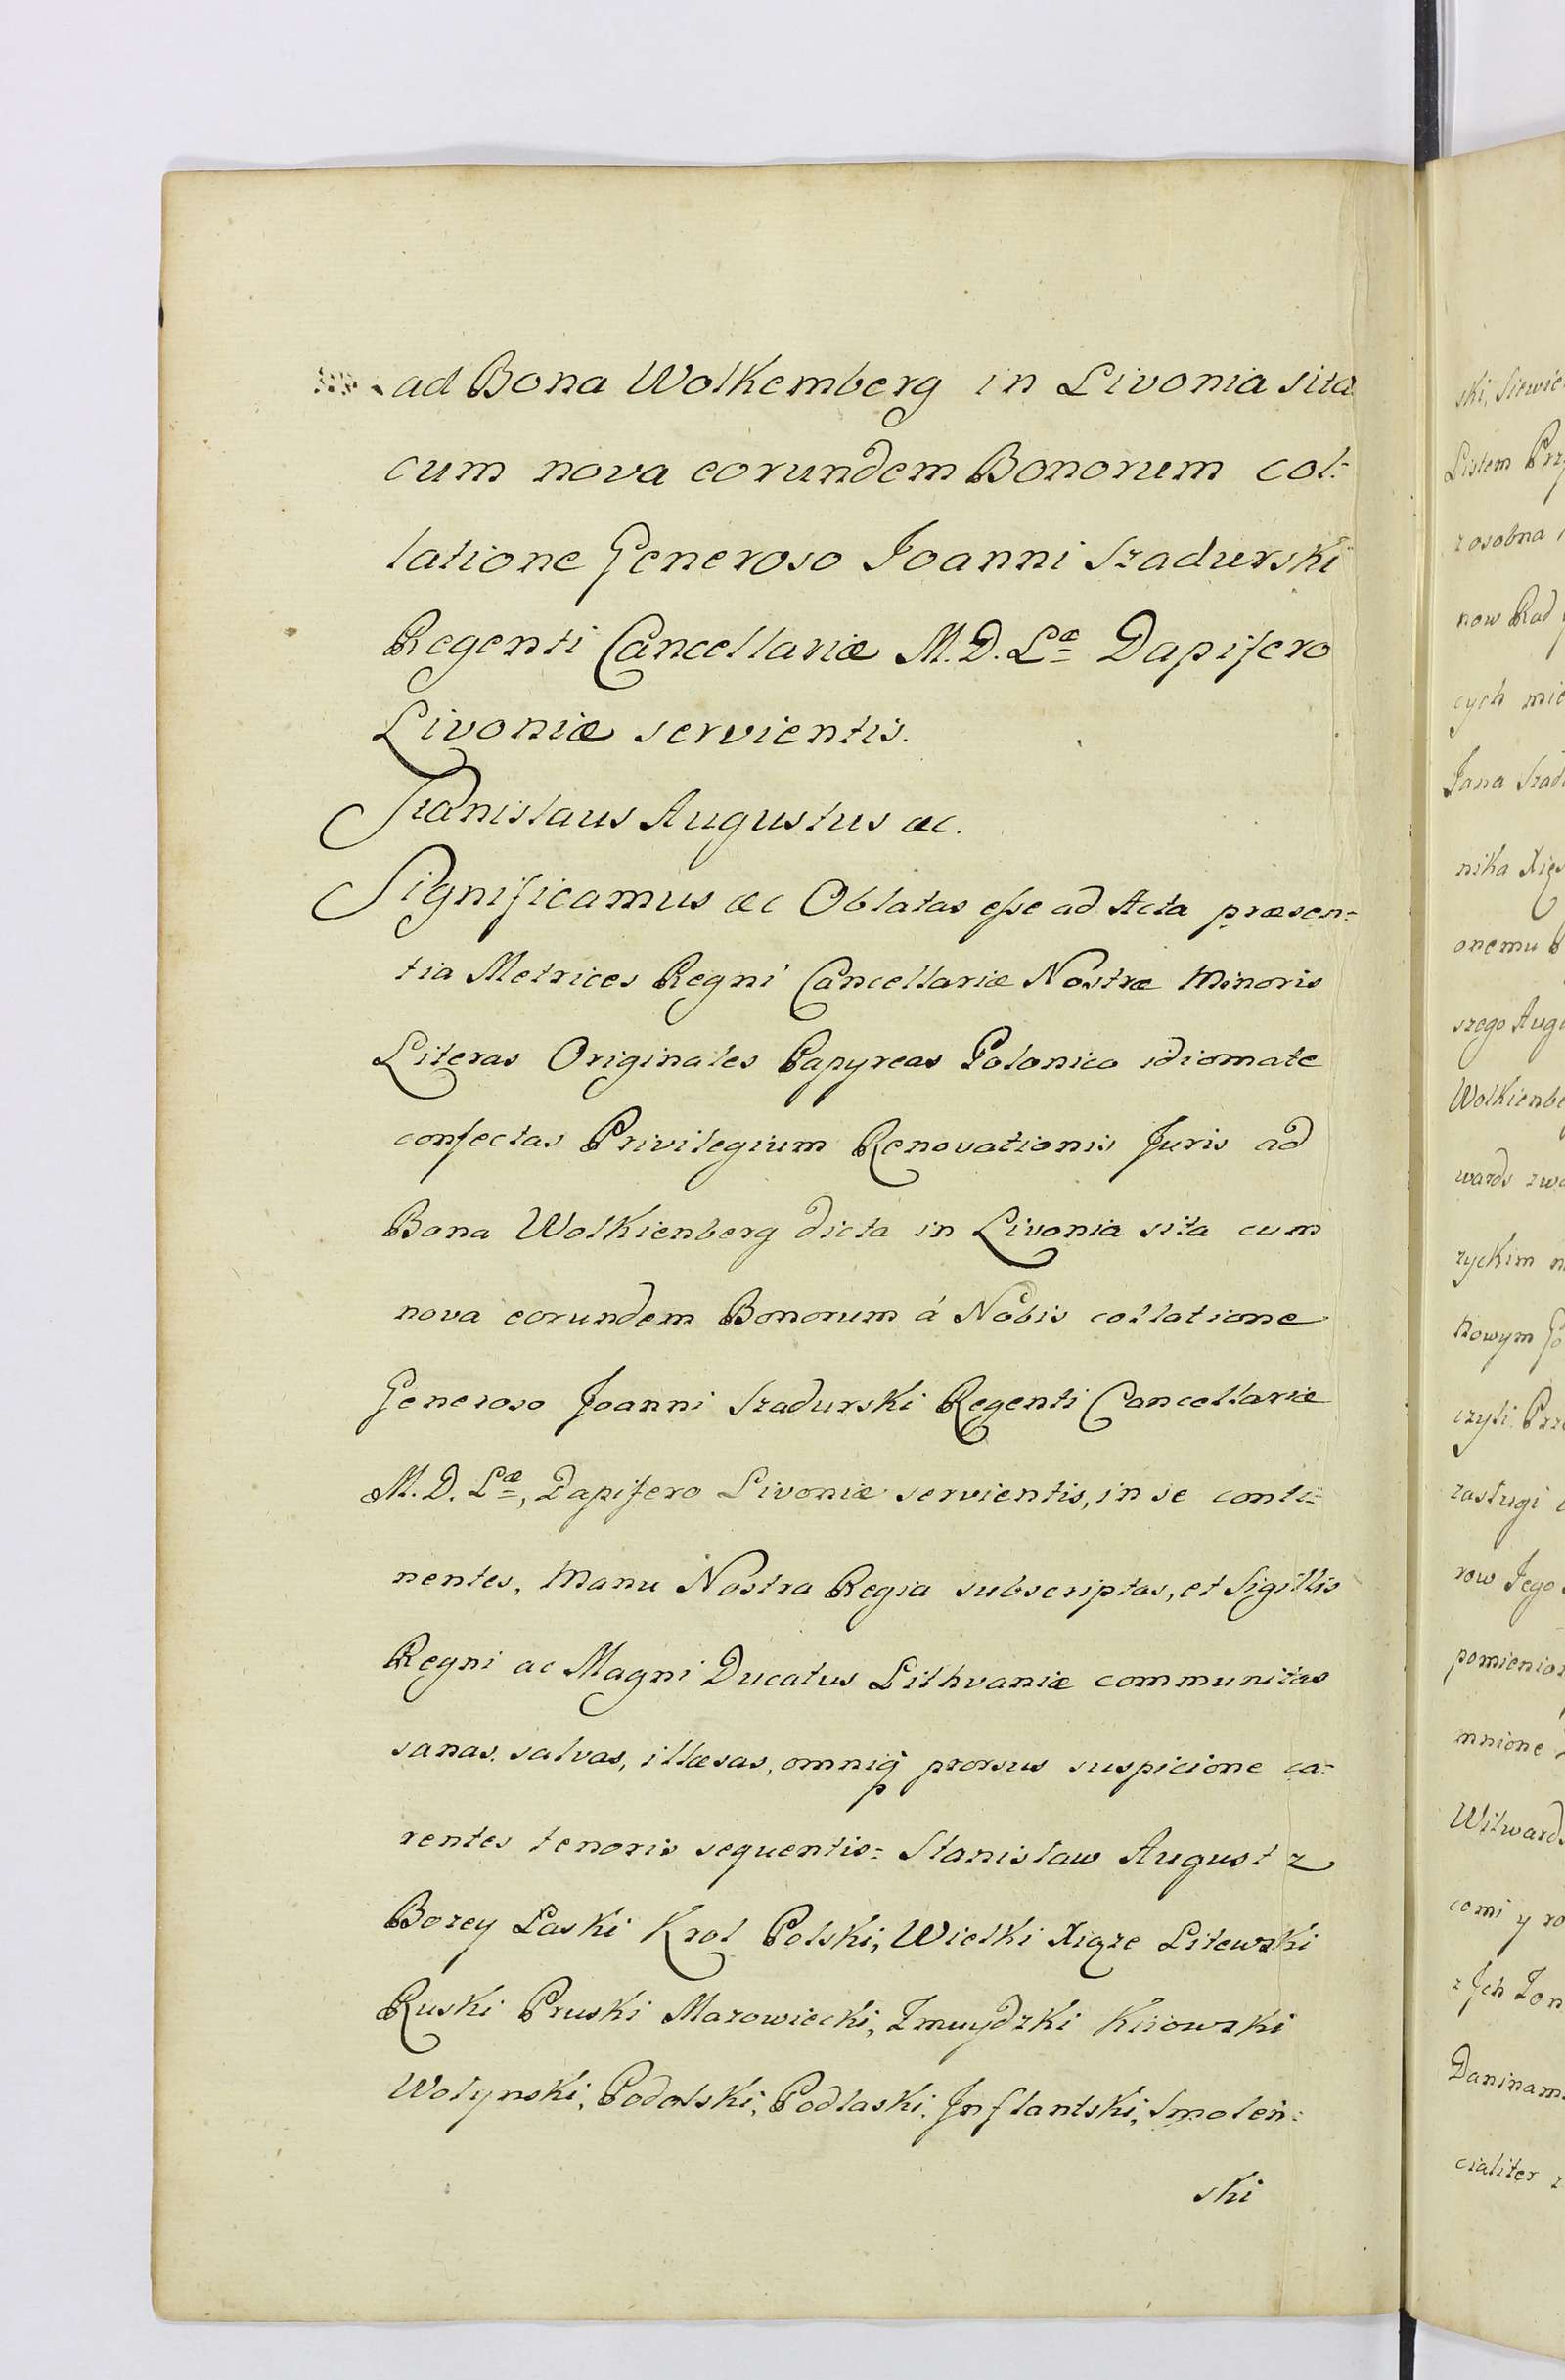 ad Bona Wolkemberg in Livonia sita
cum nova eorundem Bonorum col=
latione Generoso Joanni Szadurski
Regenti Cancellariæ M. D. Læ Dapifero
Livoniæ servientis.
Stanislaus Augustus &c.
Significamus &c Oblatas esse ad Acta præsen=
tia Metrices Regni Cancellariæ Nostræ Minoris
Literas Originales Papyreas Polonico idiomate
confectas Privilegium Renovationis Juris ad
Bona Wolkienberg dicta in Livonia sita cum
nova eorundem Bonorum á Nobis collatione
Generoso Joanni Szadurski Regenti Cancellariæ
M. D. Læ, Dapifero Livoniæ servientis, in se conti=
nentes, Manu Nostra Regia subscriptas, et Sigillis
Regni ac Magni Ducatus Lithvaniæ communitas
sanas. salvas, illæsas, omniq; prorsus suspicione ca=
rentes tenoris sequentis= Stanisław August z
Bozey Łaski Krol Polski, Wielki Xiąze Litewski
Ruski Pruski Mazowiecki, Zmuydzki Kiiowski
Wołynski, Podolski, Podlaski, Inflantski, Smoleń=
ski
ski, Siewie
Listem Prz
zosobna
now Rad
cych mie
Jana Szad
nika Xięs
onemu
szego Aug
Wolkienbe
wards zwa
zyckim
Nowym
czyli Prz
zasługi
row Jego
pomienio
mnione
Witwards
comi y ro
z Jch
Daninam
cialiter